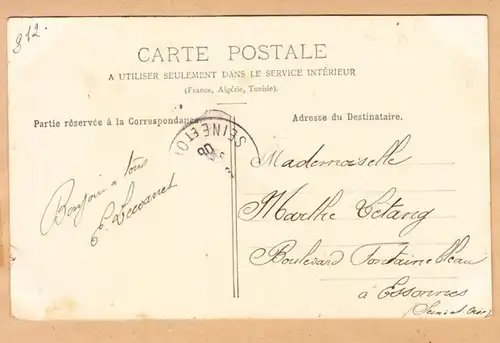 812.
CARTE POSTALE
A UTILISER SEULEMENT DANS LE SERVICE INTÉRIEUR
(France, Algérie, Tunisie).
Partie réservée à la Correspondance.
Adresse du Destinataire.
SEINE ET O
06
Bonjour à tous
Mademoiselle
Marthe Létang
Boulevard Fontainebleau
à Essonnes
(Seine et Oise)